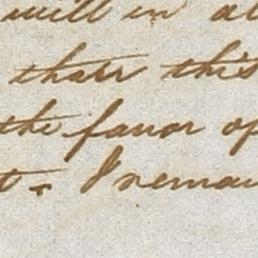 will in al
than this
the favor of
t. I remai